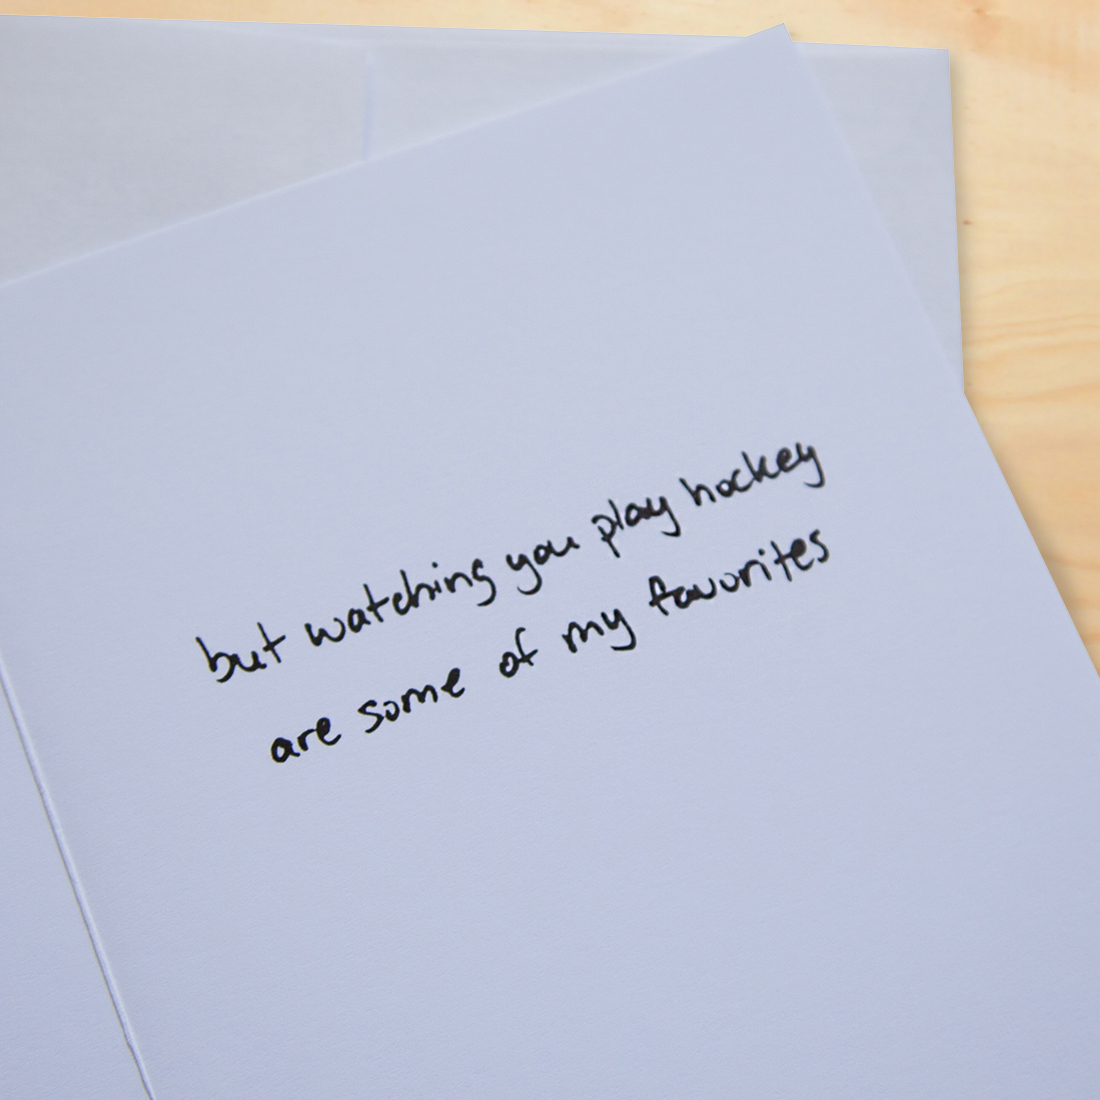 but watching you play hockey
are some of my favorites